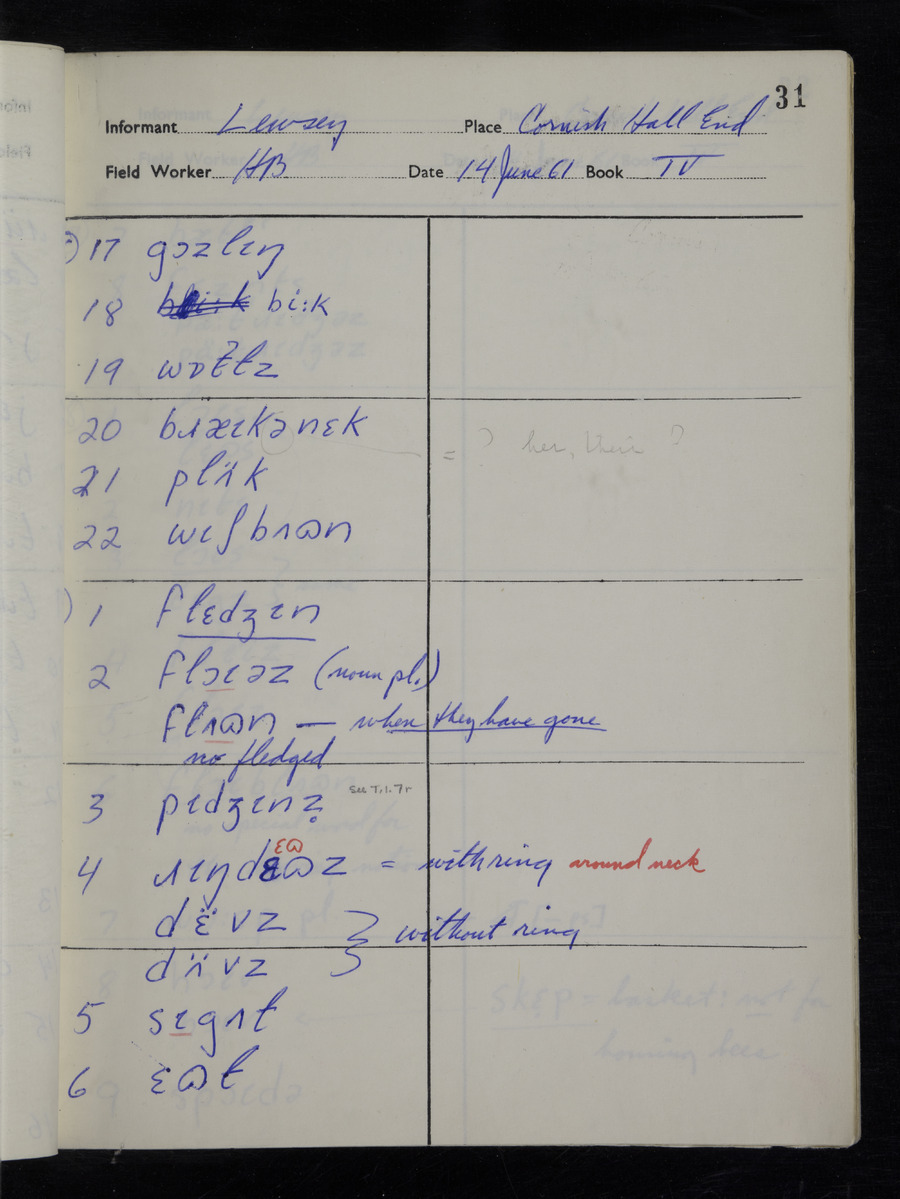 31
Informant Lewsey Place Cornish Hall End
Field Worker HB Date 14 June 61 Book IV
17 gɔzlɪŋ
18 bi:k
19 wɒtɫz
20 bɹæɪkənɛk = ? her, their ?
21 plʌ̈k
22 wɪʃbʌɷn
1 flɛdʒɪn
2 flɔɪəz (noun pl.)
flʌɷn — when they have gone
no fledged
3 pɪdʒɪnz̥ see T.1.7r
4 ɹɪŋdɛɷz ɛɷ = with ring around neck
dɛ̈vz } without ring
dʌ̈vz
5 sɪgʌɫ
6 ɛɷɫ